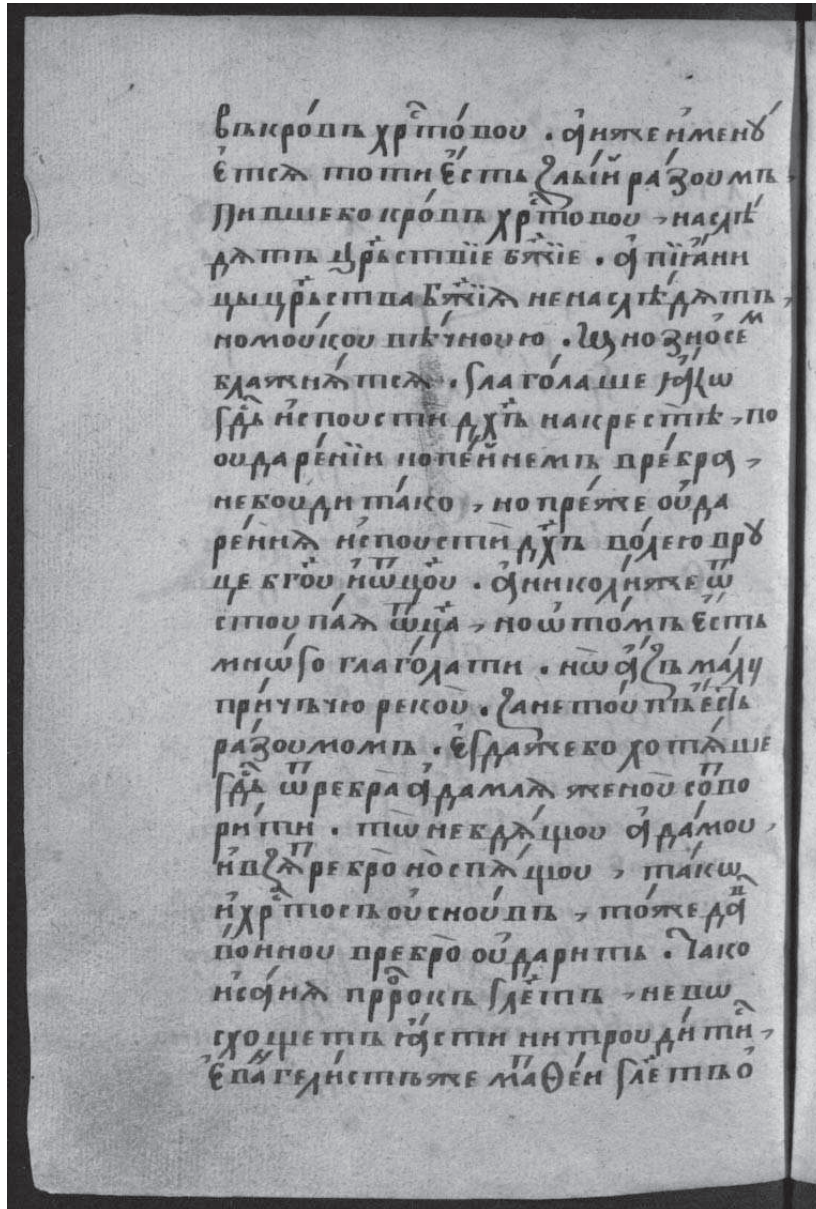 вꙿкро́вꙿ хрⷭ҇то́вꙋ . а҆ ниже и҆менꙋ́
е҆тсѧ то ти е҆́сть ѕлы́й ра́зоумъ ,
Пившебо кро́въ хрⷭ҇то́воу , наслѣ́
дѧтъ црⷭ҇ьствїе бж҃їе . а҆ пїꙗ́ни
цы црⷭ҇ьства бж҃їѧ не наслѣ́дѧтъ ,
но моу́коу вѣ́чноую . И҆но зно́сеⷨ
блажнѧ́тсѧ . глаго́лаше ꙗ҆́кѡ
гдⷭ҇ь и҆споусти дх҃ъ на крестѣ̀ , по
оударе́нїи копе́йнемъ в ре́бра ,
не боуди та́ко , но пре́же оу҆да
ре́нїѧ и҆споусти дх҃ъ во́лею в рꙋ
це бг҃оу и҆ ѿц҃оу . а҆ николи́же ѿ
стоупа́ѧ ѿц҃а , но ѡ҆ то́мъ е҆́сть
мнѡ́го глаго́лати . нѡ а҆́зъ ма́лꙋ
при́чъчю рекоу̀ . ѕане то́упъ е҆́сⷨь
ра́зоумомъ . е҆гдаже бо хотѧ́ше
гдⷭ҇ь ѿ ребра а҆да́млѧ женоу̀ со́тво
ри́ти . тѡ не бдѧ́щоу а҆да́моу ,
и҆ взѧ́т ребро̀ но спѧ́щоу , та́кѡ
и҆ хрⷭ҇тосъ оу҆сноу́въ , то́же да̀
во́иноу в ребро̀ оу҆да́ритъ . Ꙗ҆ко
и҆са́иѧ прⷪ҇рокъ гл҃етъ , не вѡ
схощетъ ꙗ҆́сти ни троуди́тиⷭ ,
е҆ваⷩ҇гели́стъже маⷮѳе́й гл҃етъ ѡ҆